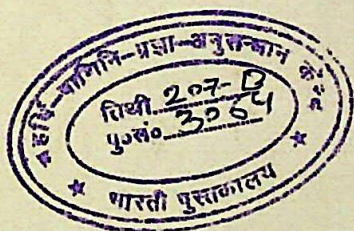 महर्षि-पाणिनि-प्रज्ञा-अनुसन्धान केन्द्र
तिथी 207-D
पु०सं० 3004
★ भारती पुस्तकालय ★